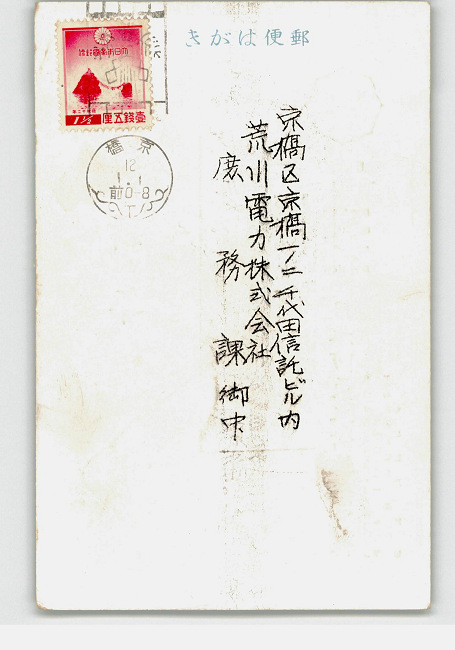 きがは便郵
大日本帝國郵便
昭和十二年
1½ 壹錢五厘
京橋
12
1.1
前0-8
京橋区京橋一ノ二千代田信託ビル内
荒川電力株式会社
庶務課御中